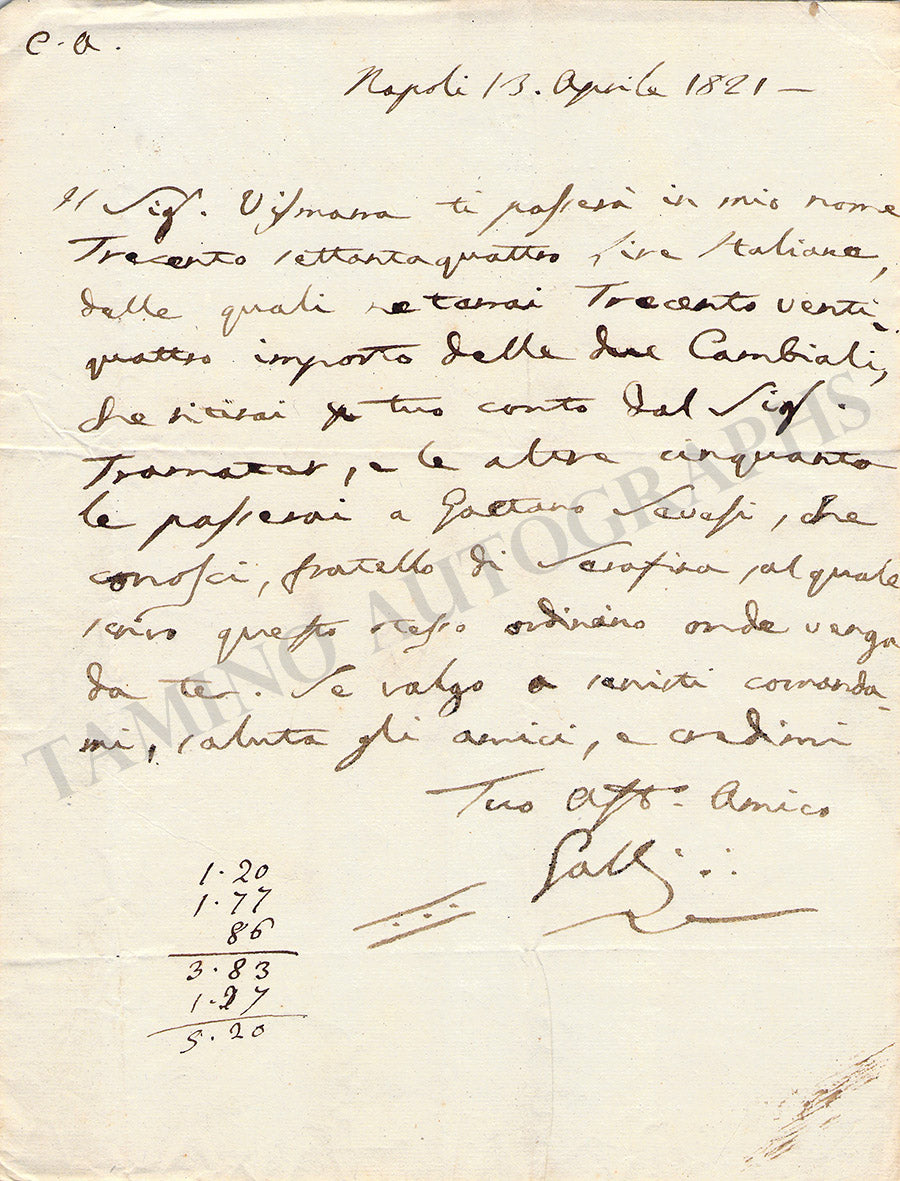 C. A.
Napoli 13. Aprile 1821 —
Il Sigr. Vismara ti passerà in mio nome
Trecento settantaquattro lire Italiane,
dalle quali
Trecento venti-
quattro importo delle due Cambiali,
che ritirai tuo conto dal Sigr.
Tramater, e le altre cinquanta
le passerai a Gaetano, che
conosci, fratello di Serafina, al quale
scrivo questo stesso ordinario onde venga
da te. Se valgo a servirti comanda-
mi, saluta gli amici, e credimi
Tuo Affo. Amico
Galli
1.20
1.77
86
3.83
5.20
TAMINO AUTOGRAPHS